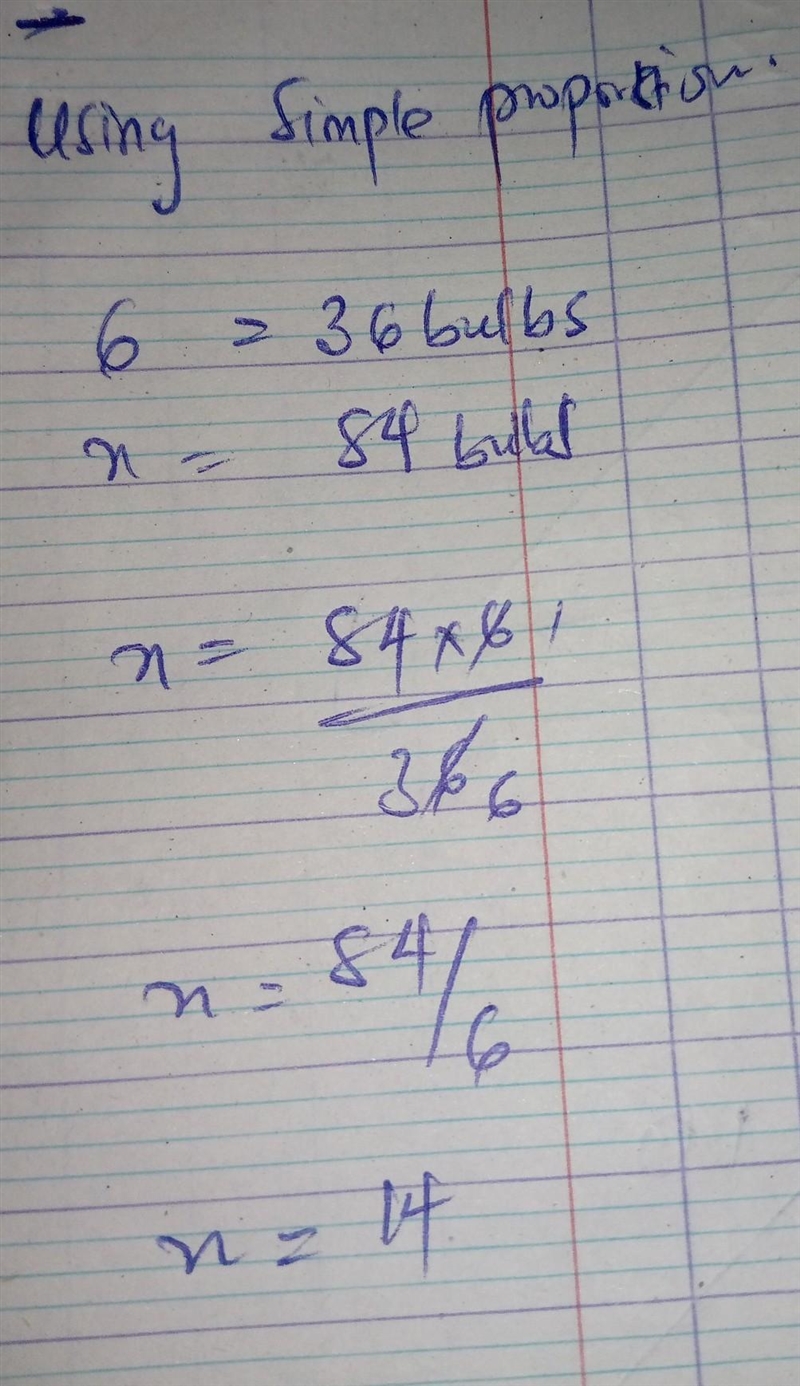 Using Simple proportion.
6 = 36 bulbs
x = 84 bulbs
x = 84 x 6 1
36 6
x = 84/6
x = 14